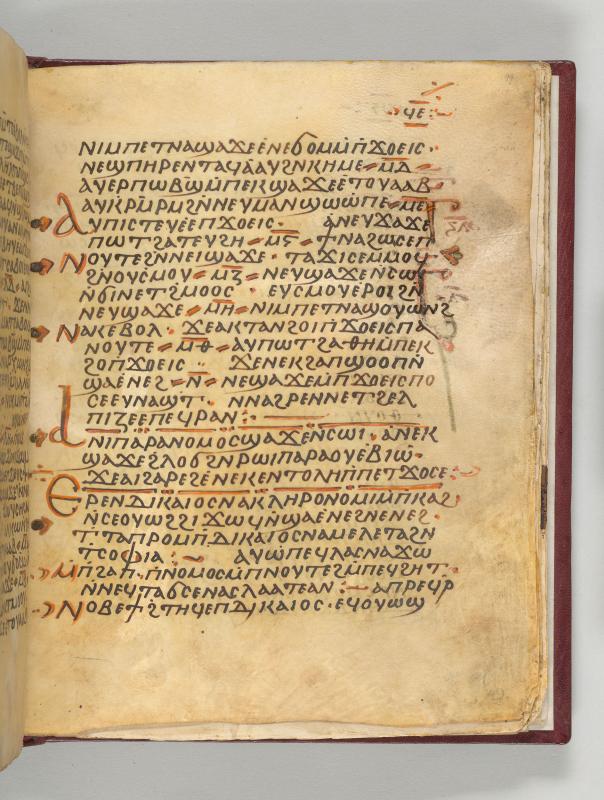 ϥⲉ
ⲛⲓⲙⲡⲉⲧⲛⲁϣⲁϫⲉⲉⲛⲉϭⲟⲙⲙⲡ̄ϫⲟⲉⲓⲥ·
ⲛⲉϣⲡⲏⲣⲉⲛⲧⲁϥⲁⲁⲩϩⲛⲕⲏⲙⲉ ⲙⲇ
ⲁⲩⲉⲣⲡⲱⲃϣ̄ⲙⲡⲉⲕϣⲁϫⲉⲉⲧⲟⲩⲁⲁⲃ
ⲁⲩⲕⲣⲙⲣⲙϩⲛⲛⲉⲩⲙⲁⲛϣⲱⲡⲉ ⲙⲉ
ⲁⲩⲡⲓⲥⲧⲉⲩⲉⲉⲡϫⲟⲉⲓⲥ· ⲁⲛⲉⲩϫⲁϫⲉ
ⲡⲱⲧϩⲁⲧⲉⲩϩⲏ ⲙⲋ ϯⲛⲁϩⲱⲥⲉⲡ
ⲛⲟⲩⲧⲉϩⲛⲛⲉⲓϣⲁϫⲉ· ⲧⲁϫⲓⲥⲉⲙⲙⲟϥ
ϩⲛⲟⲩⲥⲙⲟⲩ ⲙⲍ ⲛⲉⲩϣⲁϫⲉⲛⲥⲱϥ
ⲛ̄ϭⲓⲛⲉⲧϩⲙⲟⲟⲥ· ⲉⲩⲥⲙⲟⲩⲉⲣⲟⲓϩⲛ
ⲛⲉⲩϣⲁϫⲉ ⲙⲏ ⲛⲓⲙⲡⲉⲧⲛⲁϣⲟⲩⲱⲛϩ
ⲛⲁⲕⲉⲃⲟⲗ· ϫⲉⲁⲕⲧⲁⲛϩⲟⲓⲡϫⲟⲉⲓⲥⲡⲁ
ⲛⲟⲩⲧⲉ ⲙⲑ ⲁⲩⲡⲱⲧϩⲁⲑⲏⲙⲡⲉⲕ
ϩⲟⲡϫⲟⲉⲓⲥ ϫⲉⲛⲉⲕϩⲁⲡϣⲟⲟⲡⲛ̄
ϣⲁⲉⲛⲉϩ ⲛ ⲛⲉϣⲁϫⲉⲙⲡϫⲟⲉⲓⲥⲡⲟ
ⲥⲉⲉⲩⲛⲁϣⲧ· ⲛⲛⲁϩⲣⲉⲛⲛⲉⲧϩⲉⲗ
ⲡⲓⲍⲉⲉⲡⲉϥⲣⲁⲛ:
ⲁⲛⲓⲡⲁⲣⲁⲛⲟⲙⲟⲥϣⲁϫⲉⲛⲥⲱⲓ· ⲁⲛⲉⲕ
ϣⲁϫⲉϩⲗⲟϭϩⲛⲣⲱⲓⲡⲁⲣⲁⲟⲩⲉⲃⲓⲱ·
ϫⲉⲁⲓϩⲁⲣⲉϩⲉⲛⲉⲕⲉⲛⲧⲟⲗⲏⲡ̄ⲡⲉⲧϫⲟⲥⲉ:
ⲉⲣⲉⲛⲇⲓⲕⲁⲓⲟⲥⲛⲁⲕⲗⲏⲣⲟⲛⲟⲙⲓⲙⲡⲕⲁϩ
ⲛ̄ⲥⲉⲟⲩⲱϩϩⲓϫⲱϥⲛϣⲁⲉⲛⲉϩⲛⲉⲛⲉϩ·
ⲧ·ⲧⲁⲡⲣⲟⲙⲡ̄ⲇⲓⲕⲁⲓⲟⲥⲛⲁⲙⲉⲗⲉⲧⲁϩⲛ
ⲧⲥⲟⲫⲓⲁ: ⲁⲩⲱⲡⲉϥⲗⲁⲥⲛⲁϫⲱ
ⲙⲡϩⲁⲡ· ⲡⲛⲟⲙⲟⲥⲙⲡⲛⲟⲩⲧⲉϩⲙⲡⲉϥϩⲏⲧ·
ⲛⲛⲉϥⲧⲁϭⲥⲉⲛⲁⲥⲗⲁⲁⲧⲉⲁⲛ: ⲁⲡⲣⲉϥⲣ
ⲛⲟⲃⲉϯϩⲧⲏϥⲉⲡⲇⲓⲕⲁⲓⲟⲥ· ⲉϥⲟⲩⲱϣ